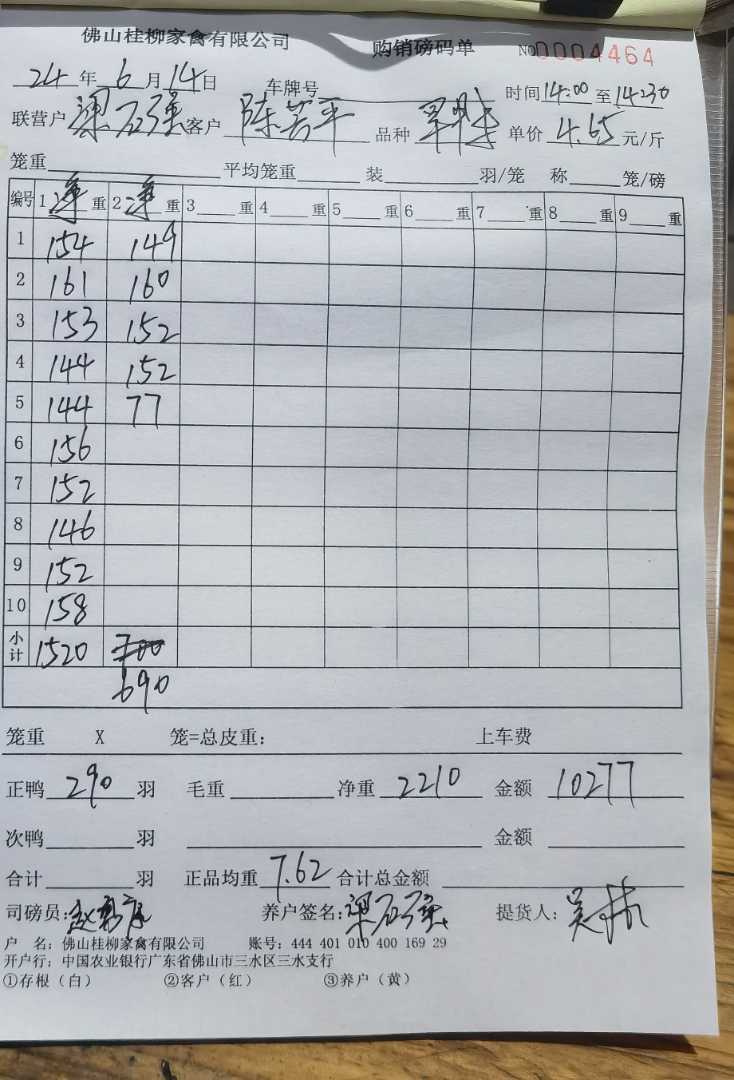 佛山桂柳家禽有限公司 购销磅码单 NO0004464
24年6月14日 车牌号 时间14:00至14:30
联营户梁石强客户 陈芳平 品种 单价4.65元/斤
笼重 平均笼重 装 羽/笼 称 笼/磅
编号 1净重 2净重 3 重 4 重 5 重 6 重 7 重 8 重 9 重
1 154 149
2 161 160
3 153 152
4 144 152
5 144 77
6 156
7 152
8 146
9 152
10 158
小计 1520 700
690
笼重 X 笼=总皮重: 上车费
正鸭290羽 毛重 净重2210 金额10277
次鸭 羽 金额
合计 羽 正品均重7.62 合计总金额
司磅员: 养户签名:梁石强 提货人:
户 名: 佛山桂柳家禽有限公司 账号: 444 401 010 400 169 29
开户行: 中国农业银行广东省佛山市三水区三水支行
①存根(白) ②客户(红) ③养户(黄)